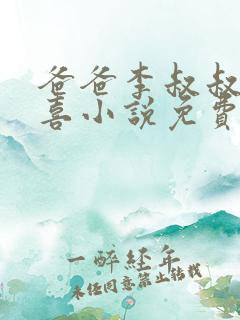 爸爸李叔叔
喜小说免費
一醉經年
未经同意禁止转载